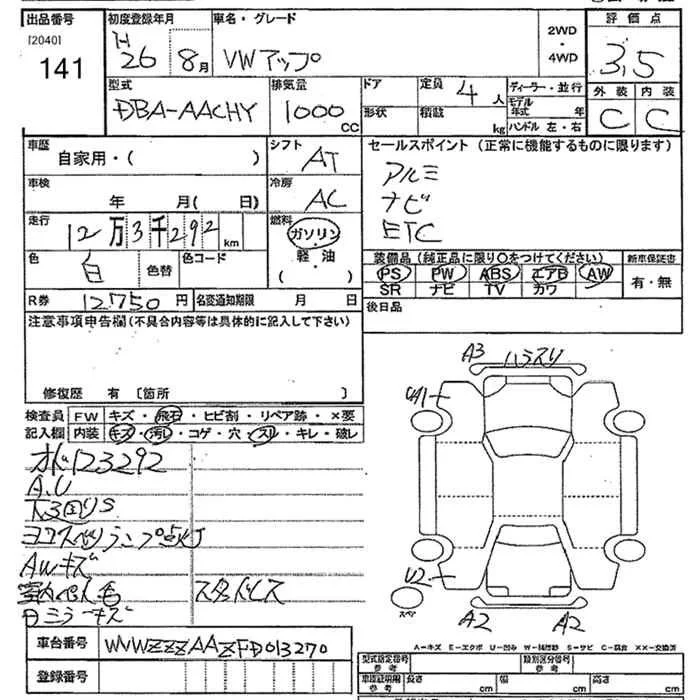 出品番号 初度登録年月 車名・グレード 2WD・4WD 評価点
[2040]
141
H26 8月 VWアップ 3.5
外装 内装
C C
型式 排気量 ドア 定員 4人 ディーラー・並行
DBA-AACHY 1000cc 形状 積載 kg モデル年式 年
ハンドル 左・右
車歴 シフト セールスポイント (正常に機能するものに限ります)
自家用・( ) AT アルミ
車検 冷房 ナビ
年 月( 日) AC ETC
走行 燃料
12万3千292km ガソリン・軽油
( )
色 色替 色コード
白
装備品 (純正品に限り○をつけてください) 新車保証書
PS PW ABS エアB AW 有・無
SR ナビ TV カワ
R券 12,750円 名変通知期限 月 日 後日品
注意事項申告欄 (不具合内容等は具体的に記入して下さい)
修復歴 有 [箇所 ]
A3 ハラスリ
UA1
検査員 FW キズ・飛石・ヒビ割・リペア跡・×要
記入欄 内装 キズ・汚レ・コゲ・穴・スレ・キレ・破レ
オド123292
A.U
下回りS
AWキズ
スタッドレス
U2
スペア
A2 A2
A-キズ E-エクボ U-凹み W-補修跡 S-サビ C-腐食 XX-交換済
車台番号 WVWZZZAAZFD013270
登録番号
型式指定番号 参考 類別区分番号 参考
車検証明用 参考 長さ cm 幅 cm 高さ cm